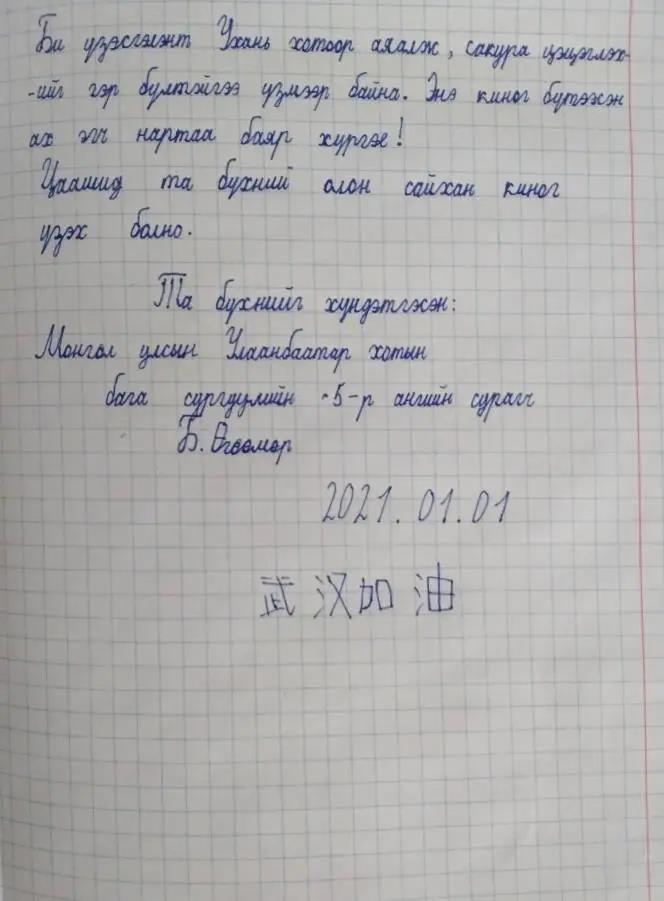 Би үзэсгэлэнт Ухань хотоор аялаж, сакура цэцэглэх-
-ийг гэр бүлтэйгээ үзмээр байна. Энэ киног бүтээсэн
ах эгч нартаа баяр хүргэе!
Цаашид та бүхний олон сайхан киног
үзэх болно.
Та бүхнийг хүндэтгэсэн:
Монгол улсын Улаанбаатар хотын
бага сургуулийн 5-р ангийн сурагч
Б. Өгөөмөр
2021.01.01
武汉加油